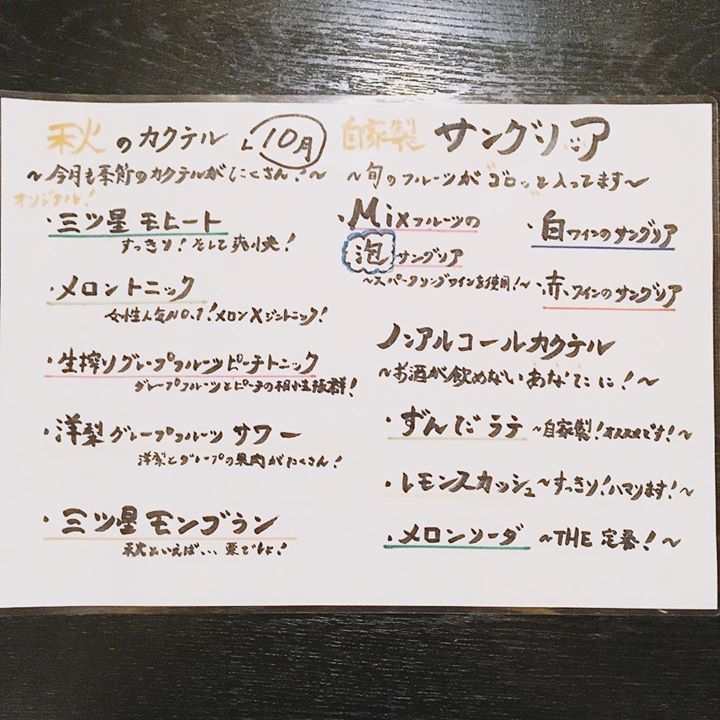 秋のカクテル 10月
～今月も季節のカクテルがたくさん!～
オリジナル!
・三ツ星モヒート
すっきり!そして爽快!
・メロントニック
女性人気NO.1!メロン×ジントニック!
・生搾りグレープフルーツピーチトニック
グレープフルーツとピーチの相性抜群!
・洋梨グレープフルーツサワー
洋梨とグレープの果肉がたくさん!
・三ツ星モンブラン
秋といえば...栗でしょ!
自家製 サングリッア
～旬のフルーツが"ゴロッ"と入ってます～
・Mixフルーツの
泡サングリア
～スパークリングワインを使用!～
・白ワインのサングリア
・赤ワインのサングリア
ノンアルコールカクテル
～お酒が飲めないあなたに!～
・ずんだラテ ～自家製!オススメです!～
・レモンスカッシュ～すっきり!ハマります!～
・メロンソーダ ～THE 定番!～